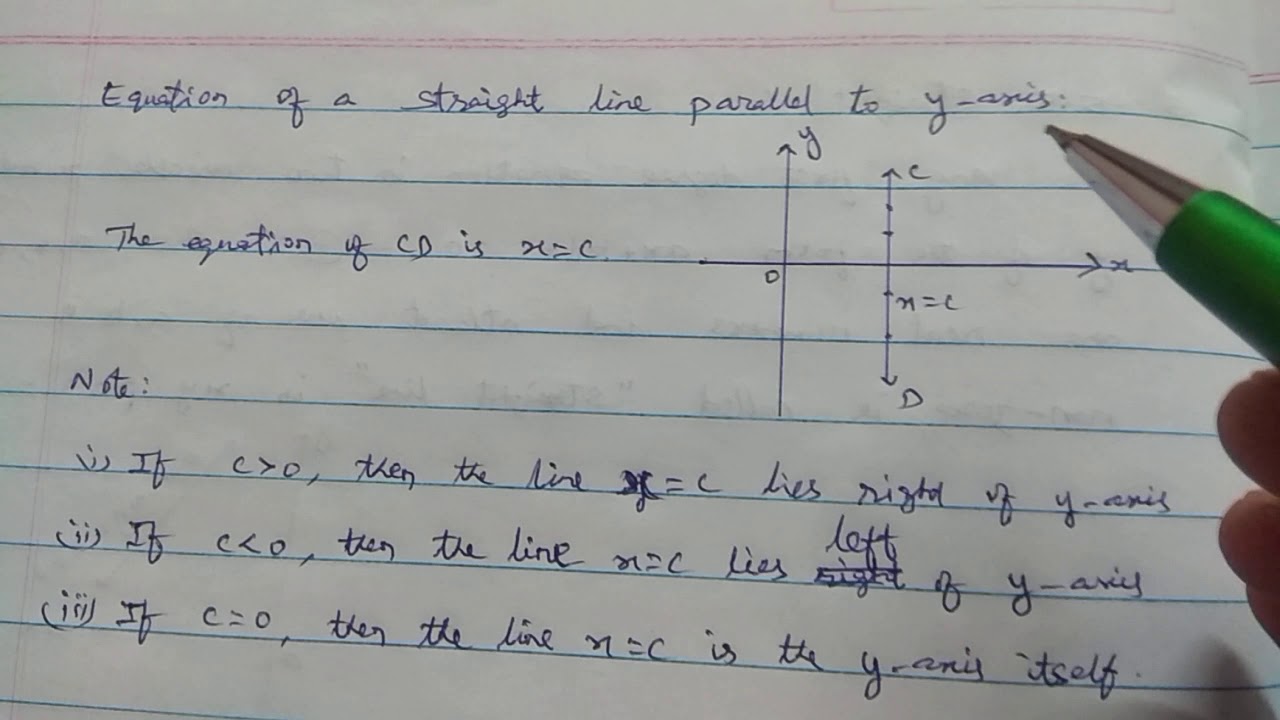 Equation of a straight line parallel to y-axis:
y
C
The equation of CD is x=c
O
x
x=c
D
Note:
(i) If c>0, then the line x=c lies right of y-axis
(ii) If c<0, then the line x=c lies left right of y-axis
(iii) If c=0, then the line x=c is the y-axis itself.